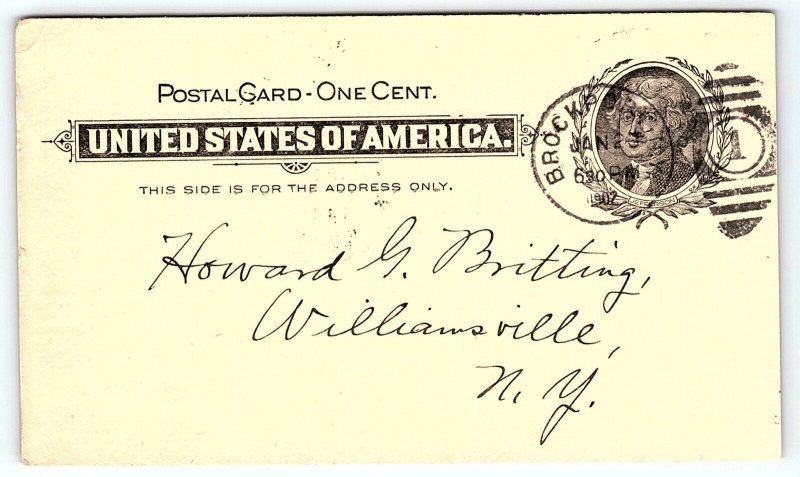 POSTAL CARD - ONE CENT.
UNITED STATES OF AMERICA.
THIS SIDE IS FOR THE ADDRESS ONLY.
JAN
630 PM
1902
1
JEFFERSON
Howard G. Britting,
Williamsville,
N. Y.